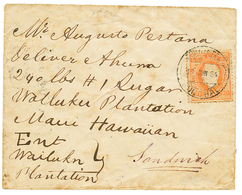 Mr Augusto Pestana
Eeliver Ahuna
240 lbs H Sugar
Walluku Plantation
Maui Hawaiian
Ent
Sandwich
Wailuku
Plantation